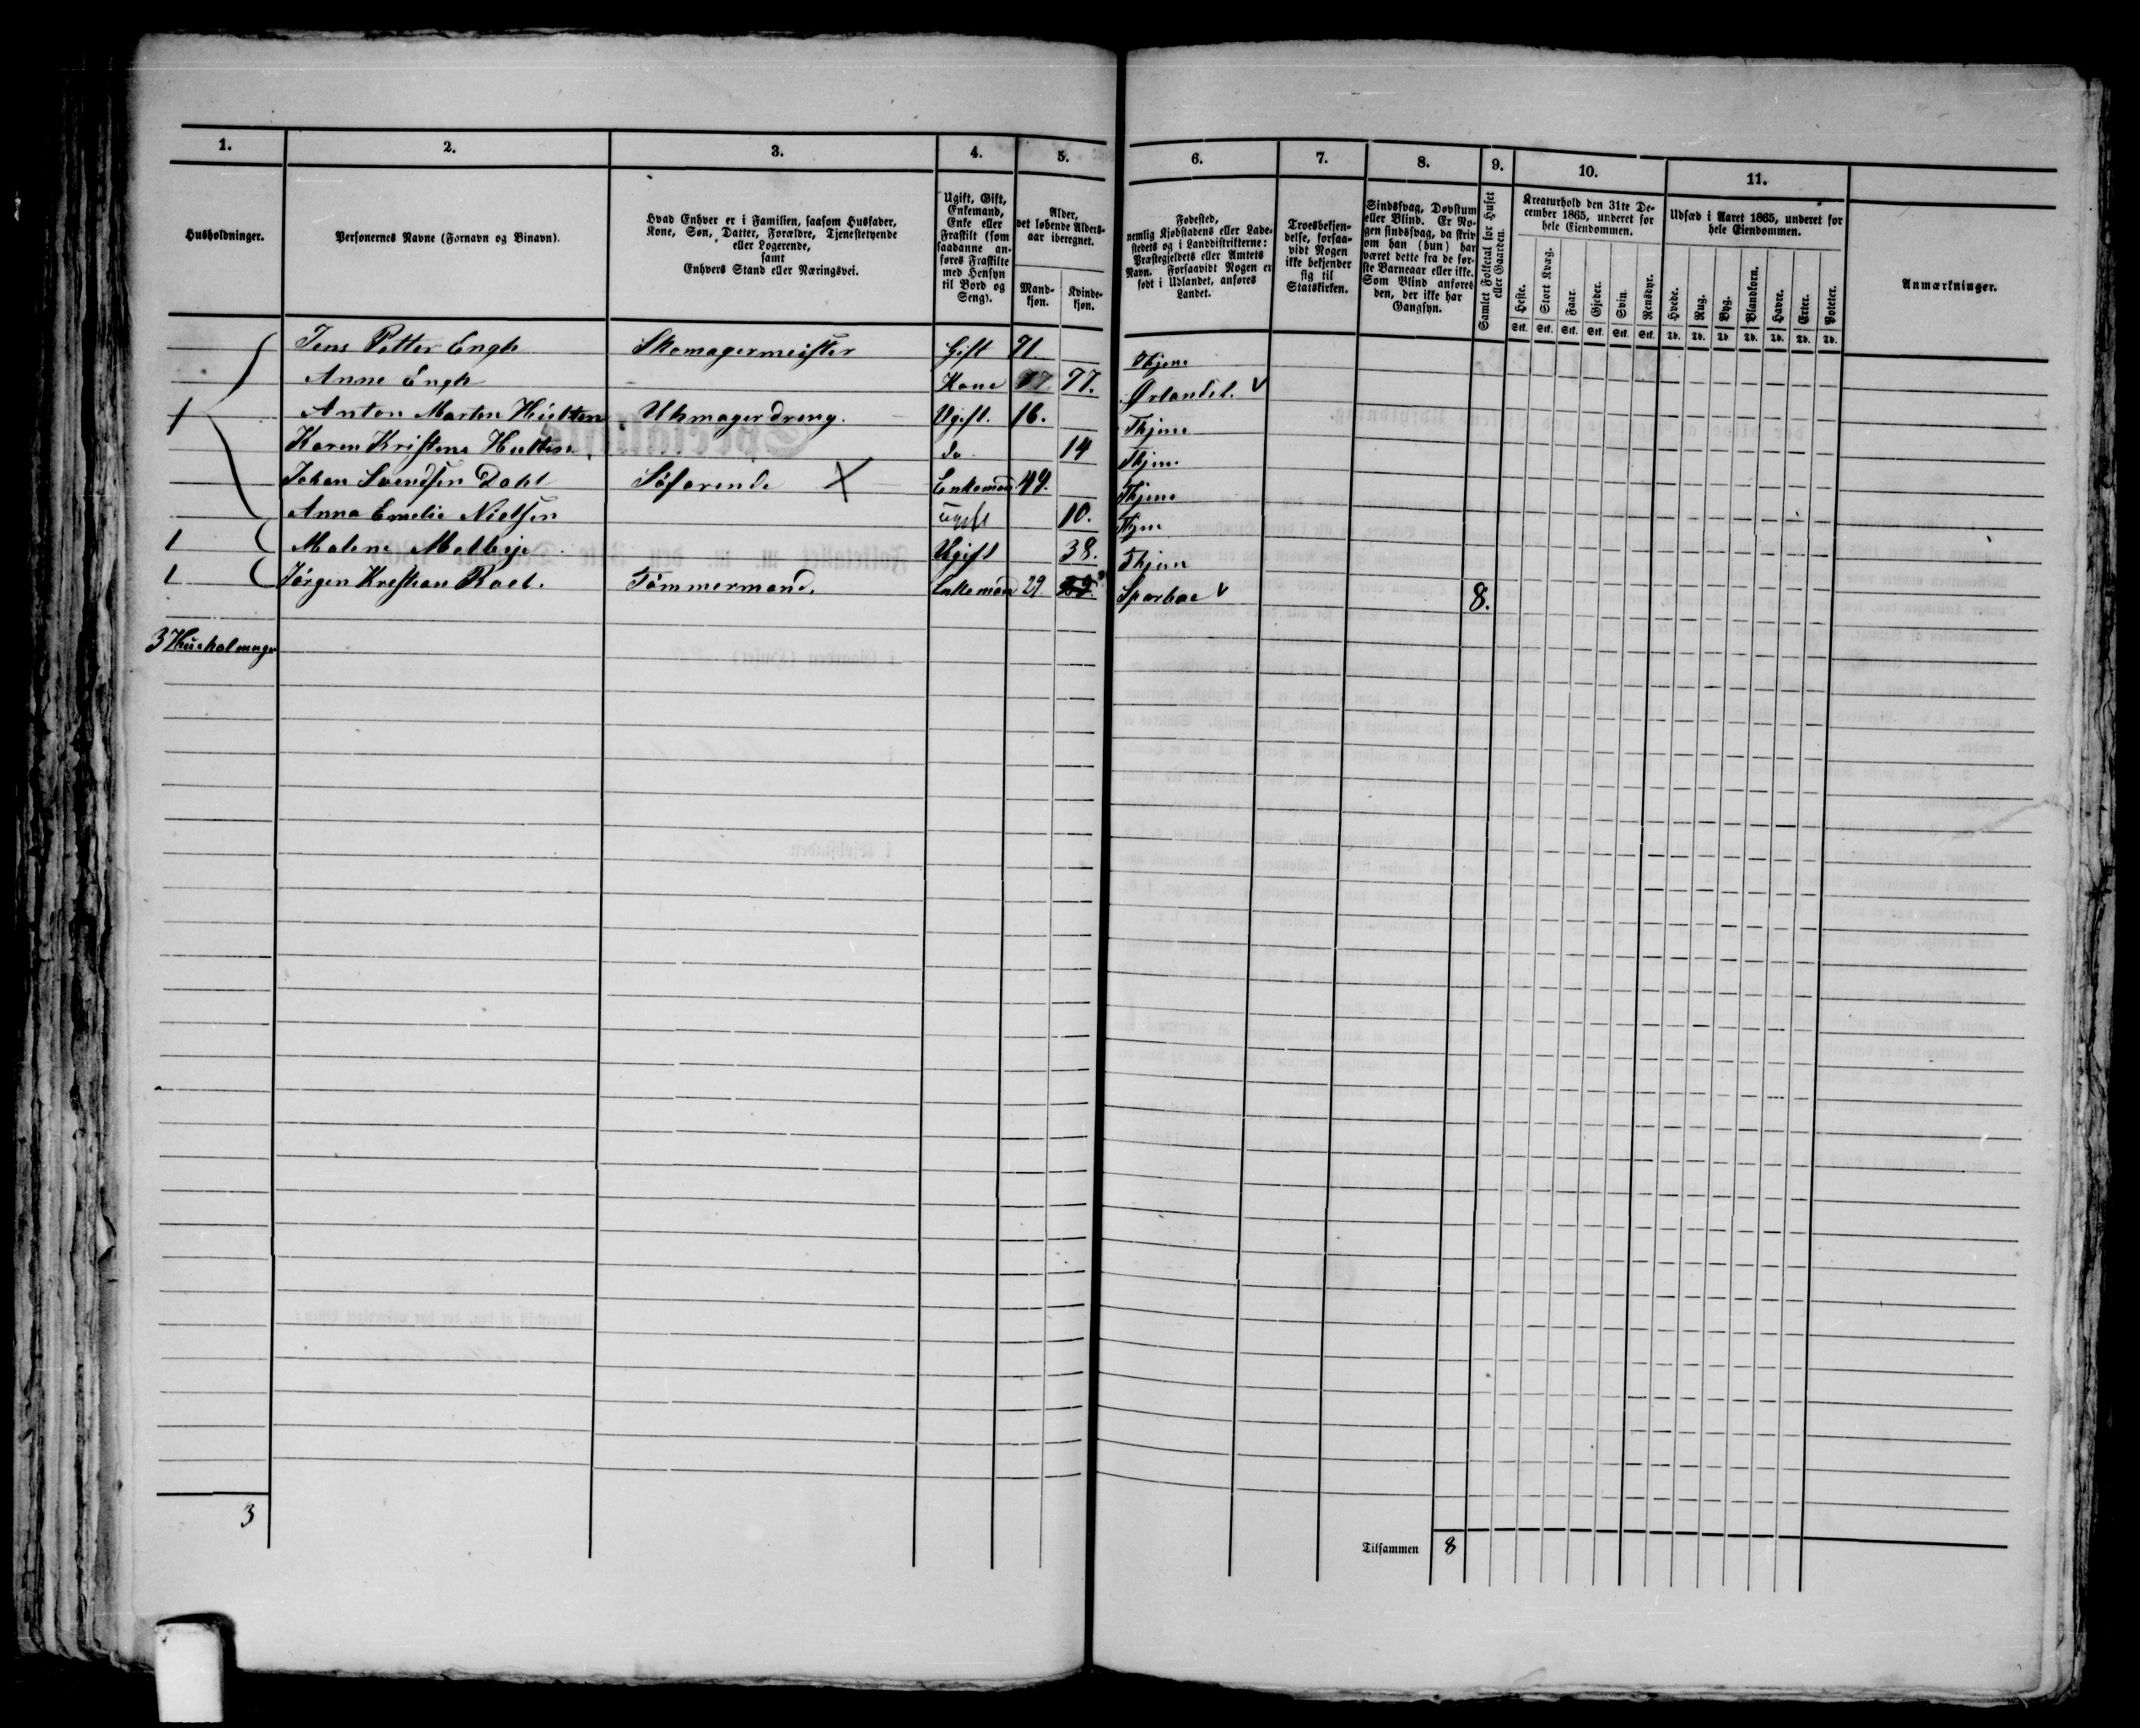 1. 2. 3. 4. 5. 6. 7. 8. 9. 10. 11.
Husholdninger.
Personernes Navne (Fornavn og Binavn).
Hvad Enhver er i Familien, saasom Husfader,
Kone, Søn, Datter, Forældre, Tjenestetyende
eller Logerende,
samt
Enhvers Stand eller Næringsvei.
Ugift, Gift,
Enkemand,
Enke eller
Fraskilt (som
saadanne an-
føres Fraskilte
med Hensyn
til Bord og
Seng).
Alder,
det løbende Alders-
aar iberegnet.
Mand-
kjøn.
Kvinde-
kjøn.
Fødested,
nemlig Kjøbstadens eller Lade-
stedets og i Landdistrikterne:
Præstegjeldets eller Amtets
Navn. Forsaavidt Nogen er
født i Udlandet, anføres
Landet.
Troesbekjen-
delse, forsaa-
vidt Nogen
ikke bekjender
sig til
Statskirken.
Sindssvag, Døvstum
eller Blind. Er No-
gen sindssvag, da skriv
om han (hun) har
været dette fra de før-
ste Barneaar eller ikke.
Som Blind anføres
den, der ikke har
Gangsyn.
Samlet Folketal for Huset
eller Gaarden.
Kreaturhold den 31te De-
cember 1865, underet for
hele Eiendommen.
Heste. Stort Kvæg. Faar. Gjeder. Svin. Rensdyr.
Stk. Stk. Stk. Stk. Stk. Stk.
Udsæd i Aaret 1865, underet for
hele Eiendommen.
Hvede. Rug. Byg. Blandkorn. Havre. Erter. Poteter.
Td. Td. Td. Td. Td. Td. Td.
Anmærkninger.
Jens Petter Engh Skomagermeister Gift 71. Thjem
Anne Engh Kone 77. Ørlandet. V
1 Anton Marten Uhrmagerdreng. Ugift. 16. Thjem
Karen Kristene do 14 Thjem
Johan Svendsen Dahl Søfarende X Enkemand 49. Thjem
Anna Emelie Nielsen ugift 10. Thjem
1 Malene Ugift 38. Thjem
1 Jørgen Krestian Tømmermand. Enkemand 29. Sparboe V 8.
3 Husholdninger
3
Tilsammen 8